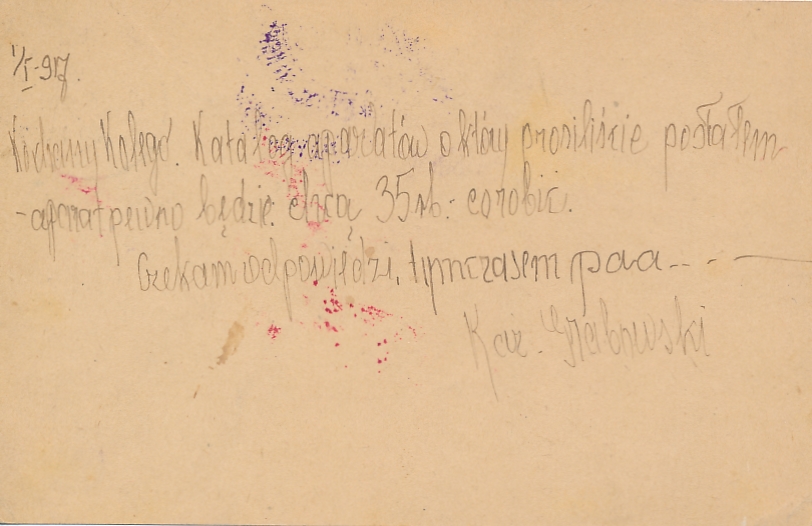 1/I-917.
Kochany Kolego. Katalog aparatów o który prosiliście posłałem-
-aparat pewno będzie. chcą 35 rb.- co robić.
Czekam odpowiedzi, tymczasem paa - - . -
Kaź. Grabowski